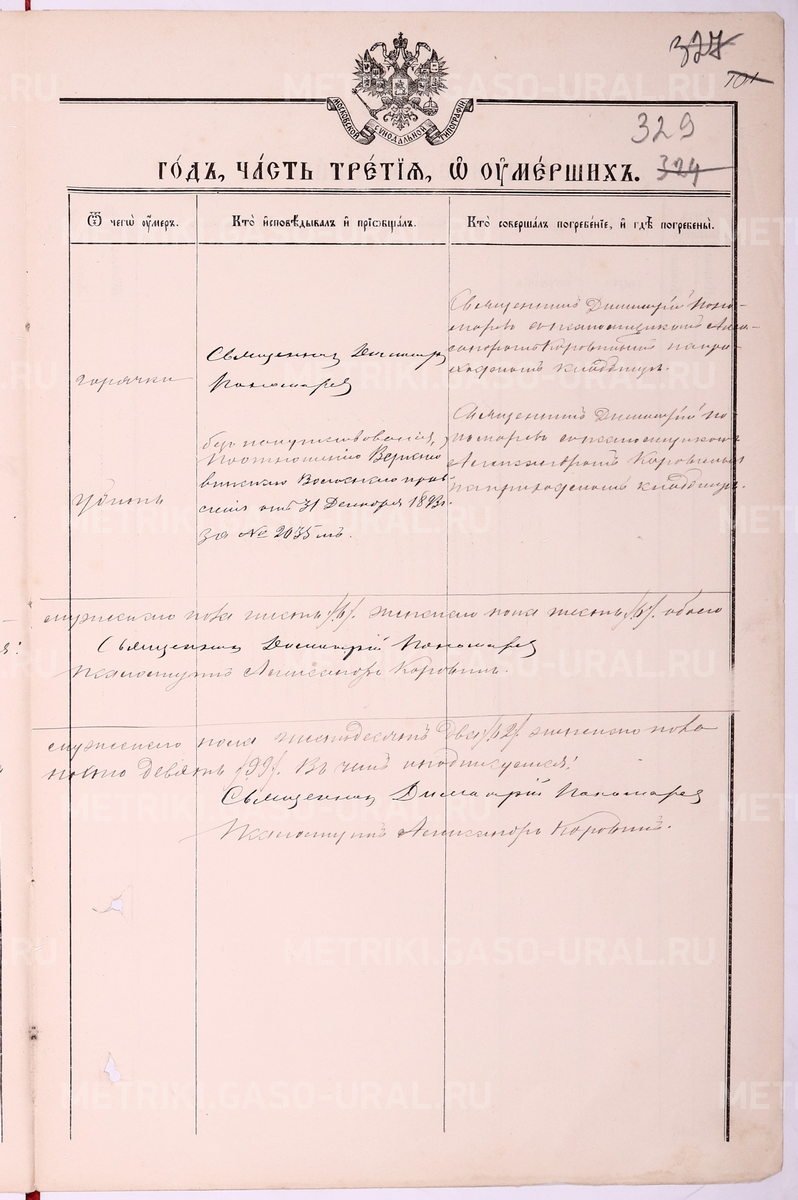 327
101
329
324
МОСКОВСКОЙ СѴНОДАЛЬНОЙ ТИПОГРАФІИ
ГО́ДЪ, ЧА́СТЬ ТРЕ́ТІѦ, Ѡ҆ ОУ҆МЕ́РШИХЪ.
Ѿ чегѡ̀ оу҆́меръ.
Кто̀ и҆сповѣ́дывалъ и҆ прїѡбща́лъ.
Кто̀ соверша́лъ погребе́нїе, и҆ гдѣ̀ погребены̀.
горячки
Священникъ Димитрій
Пономаревъ
Священникъ Димитрій Поно-
маревъ съ псаломщикомъ Алек-
сандромъ Коровинымъ на при-
ходскомъ кладбищѣ.
убитъ
без напутствования,
По отношению
Волостнаго прав-
ления отъ 31 Декабря 1893 г.
за № 2035 мъ.
Священникъ Димитрій По-
номаревъ съ псаломщикомъ
Александромъ Коровинымъ
на приходскомъ кладбищѣ.
мужескаго пола шесть /6/. женскаго пола шесть /6/. обоего
Священникъ Димитрій Пономаревъ
Псаломщикъ Александръ Коровинъ.
мужескаго пола шестьдесятъ два /62/ женскаго пола
девять /99/. Въ чемъ и подписуемся:
Священникъ Димитрій Пономаревъ
Псаломщикъ Александръ Коровинъ.
METRIKI.GASO-URAL.RU